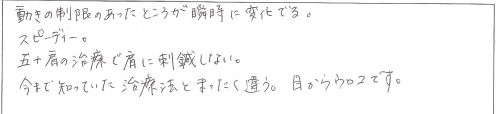 動きの制限のあったところが瞬時に変化でる。
スピーディー。
五十肩の治療で肩に刺鍼しない。
今まで知っていた治療法とまったく違う。目からウロコです。